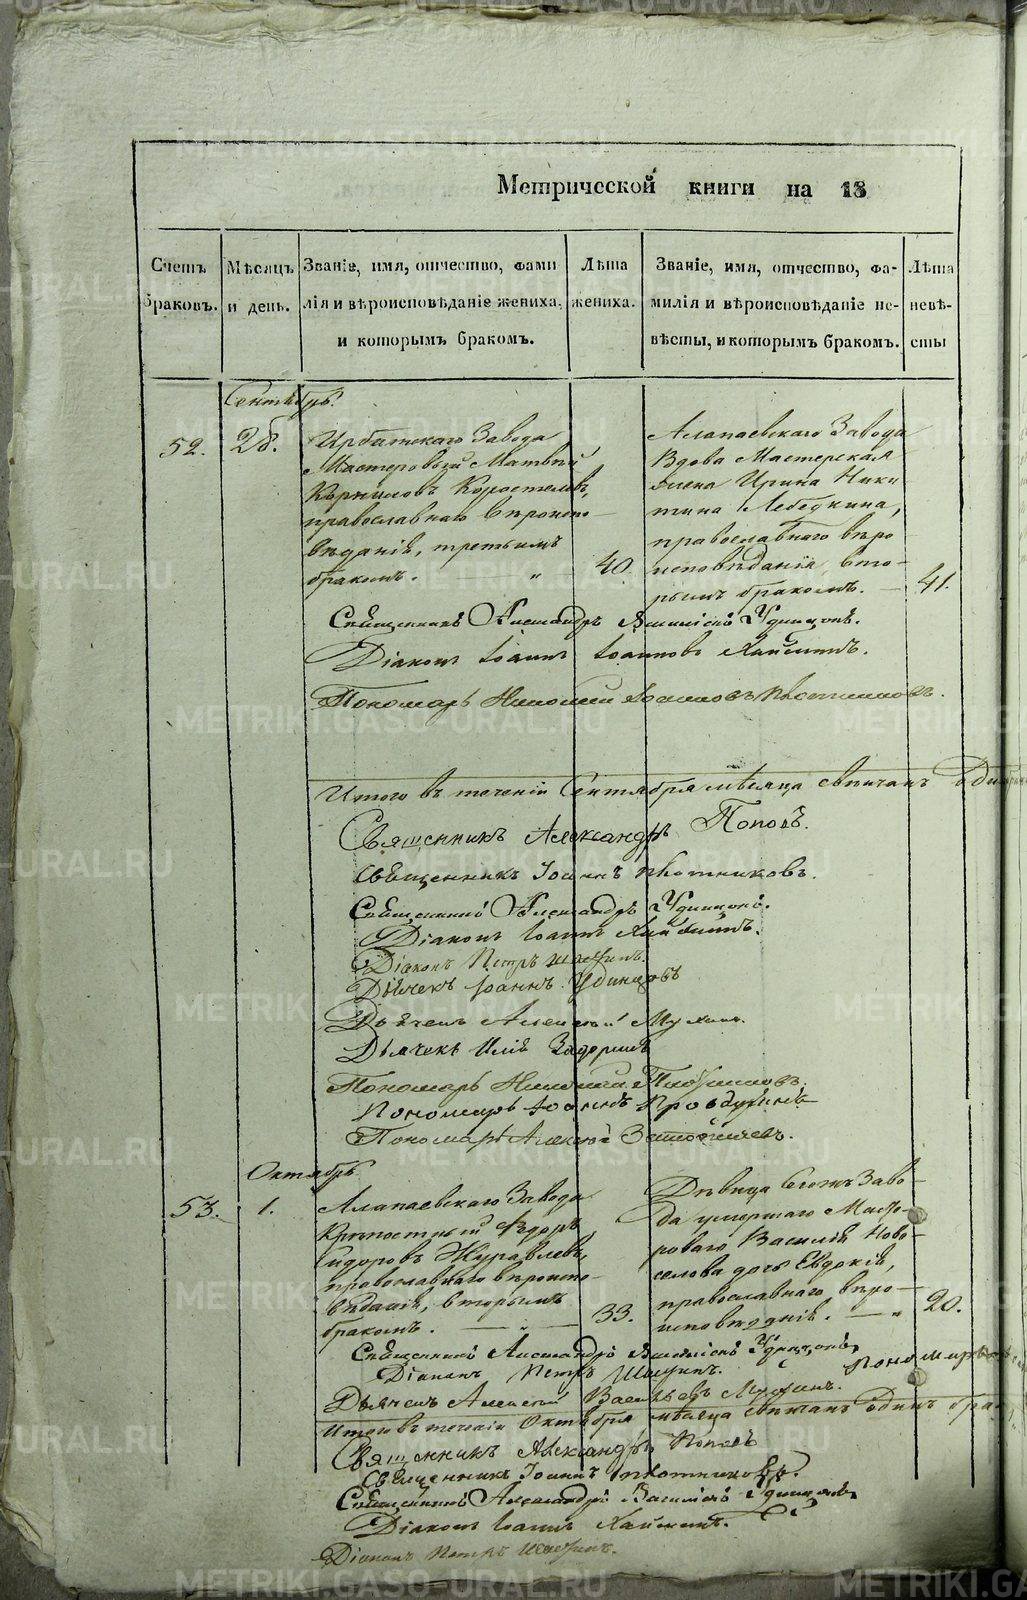 Метрической книги на 18
Счетъ браковъ.
Мѣсяцъ и день.
Званіе, имя, отчество, фами
лія и вѣроисповѣданіе жениха,
и которымъ бракомъ.
Лѣта
жениха.
Званіе, имя, отчество, фа-
милія и вѣроисповѣданіе не-
вѣсты, и которымъ бракомъ.
Лѣта
невѣ-
сты
Сентябрь.
52.
28.
Ирбитскаго Завода
Мастеровый Матвѣй
Корниловъ Коростелевъ,
православнаго вѣроиспо-
вѣданія, третьимъ
бракомъ. "
40.
Алапаевскаго Завода
Вдова Мастерская
жена Ирина Ники
тина Лебедкина,
православнаго вѣро
исповѣданія, вто-
рымъ бракомъ. —
41.
Священникъ Александръ Удинцовъ.
Діаконъ Іоаннъ Іоанновъ
Пономарь Николай
Итого въ теченіи Сентября мѣсяца свѣнчанъ Один
Священникъ Александръ Поповъ.
Священникъ Іоаннъ Плотниковъ.
Священникъ Александръ Удинцовъ.
Діаконъ Іоаннъ
Діаконъ Петръ
Дьячекъ Іоаннъ Удинцовъ
Дьячекъ Алексѣй
Дьячекъ Илія
Пономарь Николай
Пономарь Іоаннъ
Пономарь Алексѣй
Октябрь
53.
1.
Алапаевскаго Завода
Крѣпостный Ѳедоръ
Сидоровъ Журавлевъ,
православнаго вѣроиспо-
вѣданія, вторымъ
бракомъ. — " —
33.
Дѣвица сего жъ Заво-
да умершаго Масте-
роваго Василія Ново-
селова дочь Евдокія,
православнаго вѣро-
исповѣданія. — "
20.
Священникъ Александръ Удинцовъ
Діаконъ Петръ
Пономарь
Дьячекъ Алексѣй Васильевъ
Итого въ теченіи Октября мѣсяца свѣнчанъ Одинъ бракъ,
Священникъ Александръ Поповъ
Священникъ Іоаннъ Плотниковъ.
Священникъ Александръ Удинцовъ
Діаконъ Іоаннъ
Діаконъ Петръ
METRIKI.GASO-URAL.RU